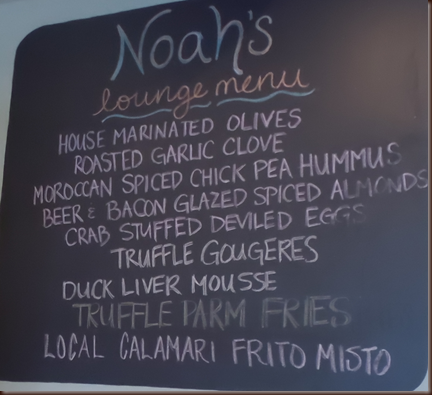 Noah's
lounge menu
HOUSE MARINATED OLIVES
ROASTED GARLIC CLOVE
MOROCCAN SPICED CHICK PEA HUMMUS
BEER & BACON GLAZED SPICED ALMONDS
CRAB STUFFED DEVILED EGGS
TRUFFLE GOUGERES
DUCK LIVER MOUSSE
TRUFFLE PARM FRIES
LOCAL CALAMARI FRITO MISTO